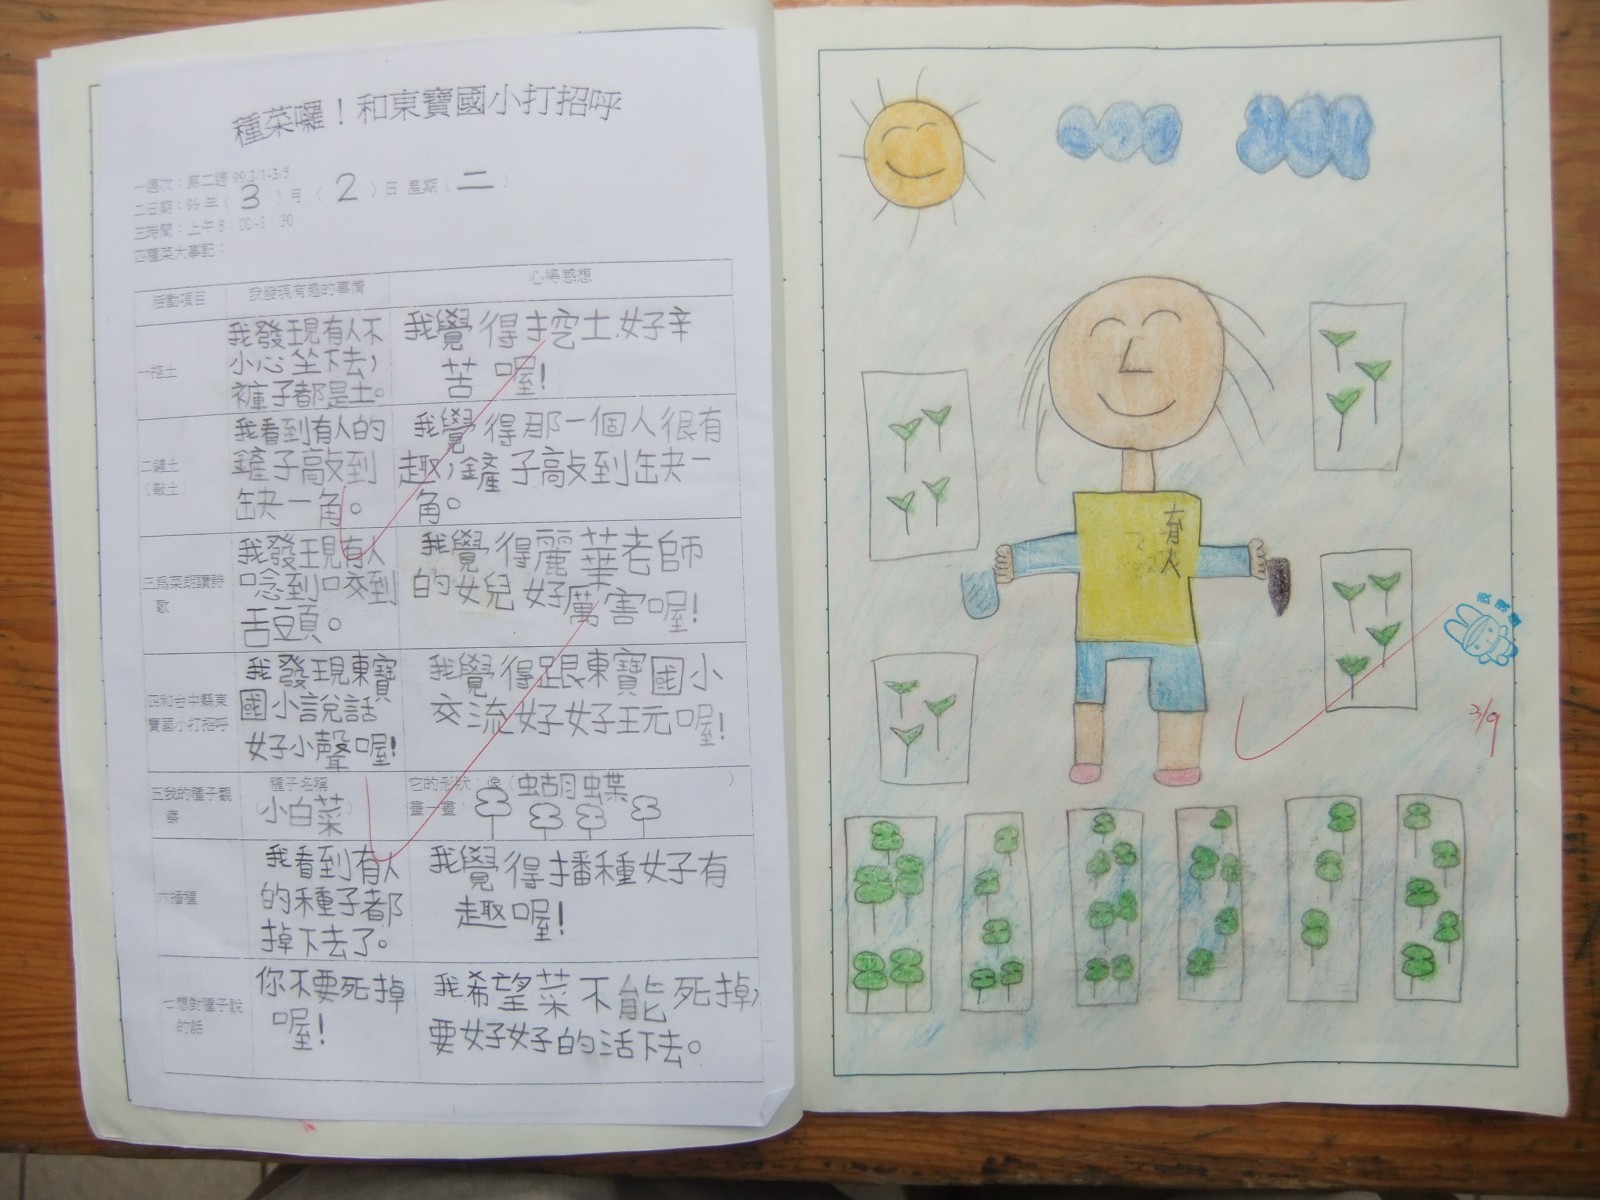 種菜囉！和東寶國小打招呼
一週次：第二週 99.3/1-3/5
二日期：99年（3）月（2）日 星期（二）
三時間：上午8：00~8：30
四種菜大事記：
活動項目
我發現有趣的事情
心得感想
一挖土
我發現有人不
小心坐下去，
褲子都是土。
我覺得挖土好辛
苦喔！
二鏟土
（敲土）
我看到有人的
鏟子敲到
缺一角。
我覺得那一個人很有
趣，鏟子敲到缺一
角。
三為菜朗讀詩
歌
我發現有人
唸到咬到
舌頭。
我覺得麗華老師
的女兒好厲害喔！
四和台中縣東
寶國小打招呼
我發現東寶
國小說話
好小聲喔！
我覺得跟東寶國小
交流好好玩喔！
五我的種子觀
察
種子名稱
（小白菜）
它的形狀：像（蝴蝶）
畫一畫：
六播種
我看到有人
的種子都
掉下去了。
我覺得播種好有
趣喔！
七想對種子說
的話
你不要死掉
喔！
我希望菜不能死掉，
要好好的活下去。
有
人
3/9